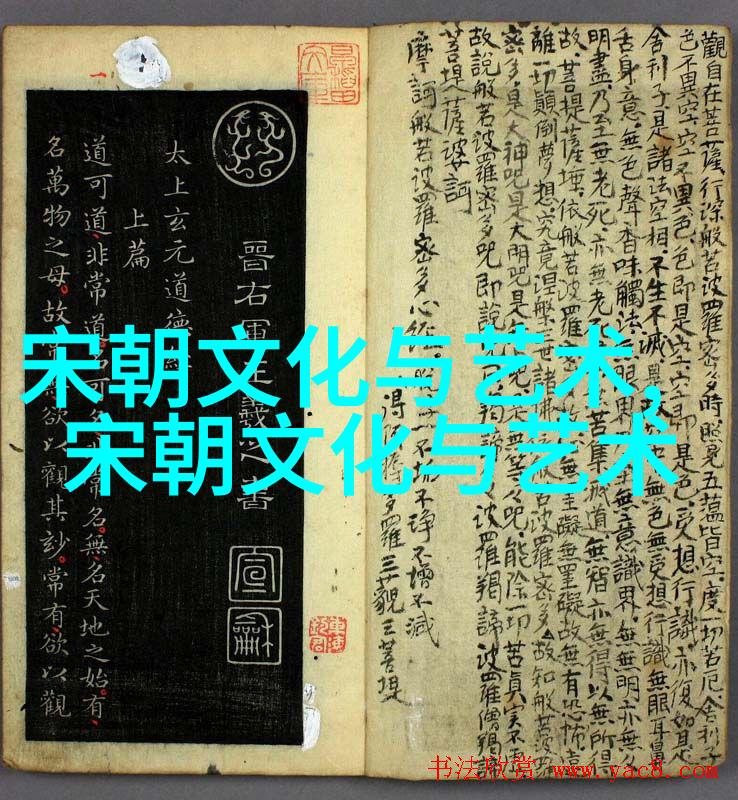 宋朝文化与艺术,
宋朝文化与艺术
觀自在菩薩,行深般若波羅密多時,照見五蘊皆空,度一切苦厄,舍利子
色不異空,空不異色,色即是空,空即是色,受想行識,亦復如是
舍利子是諸法空相,不生不滅 無色無受想行識無眼耳鼻
舌身意,無色聲香味觸法,無眼界 無意識界,無無明亦無
明盡,乃至無老死,亦無老 苦集滅道,無智亦無得以無所得
故,菩提薩埵,依般若波羅密 無罣礙無罣礙故無有恐怖遠
離一切顛倒夢想究竟涅槃三世諸佛 般若波羅密多故知般若波羅
密多是大神咒是大明咒是 無等々咒,能除一切苦真實不虛
故說般若波羅密多咒即說 羯諦 波羅羯諦 波羅僧羯諦
菩提薩婆訶
摩訶般若波羅密多心經 不垢不淨不增不減
得 多羅三藐三菩提
晉右軍王羲之書
宣
龢
太上玄元道德經
上篇
道可道,非常道,名可名,非常名。無,名天地之始。有,
名萬物之母。故常 欲以觀其妙。常有,欲以觀
书法欣赏 www.yac8.com